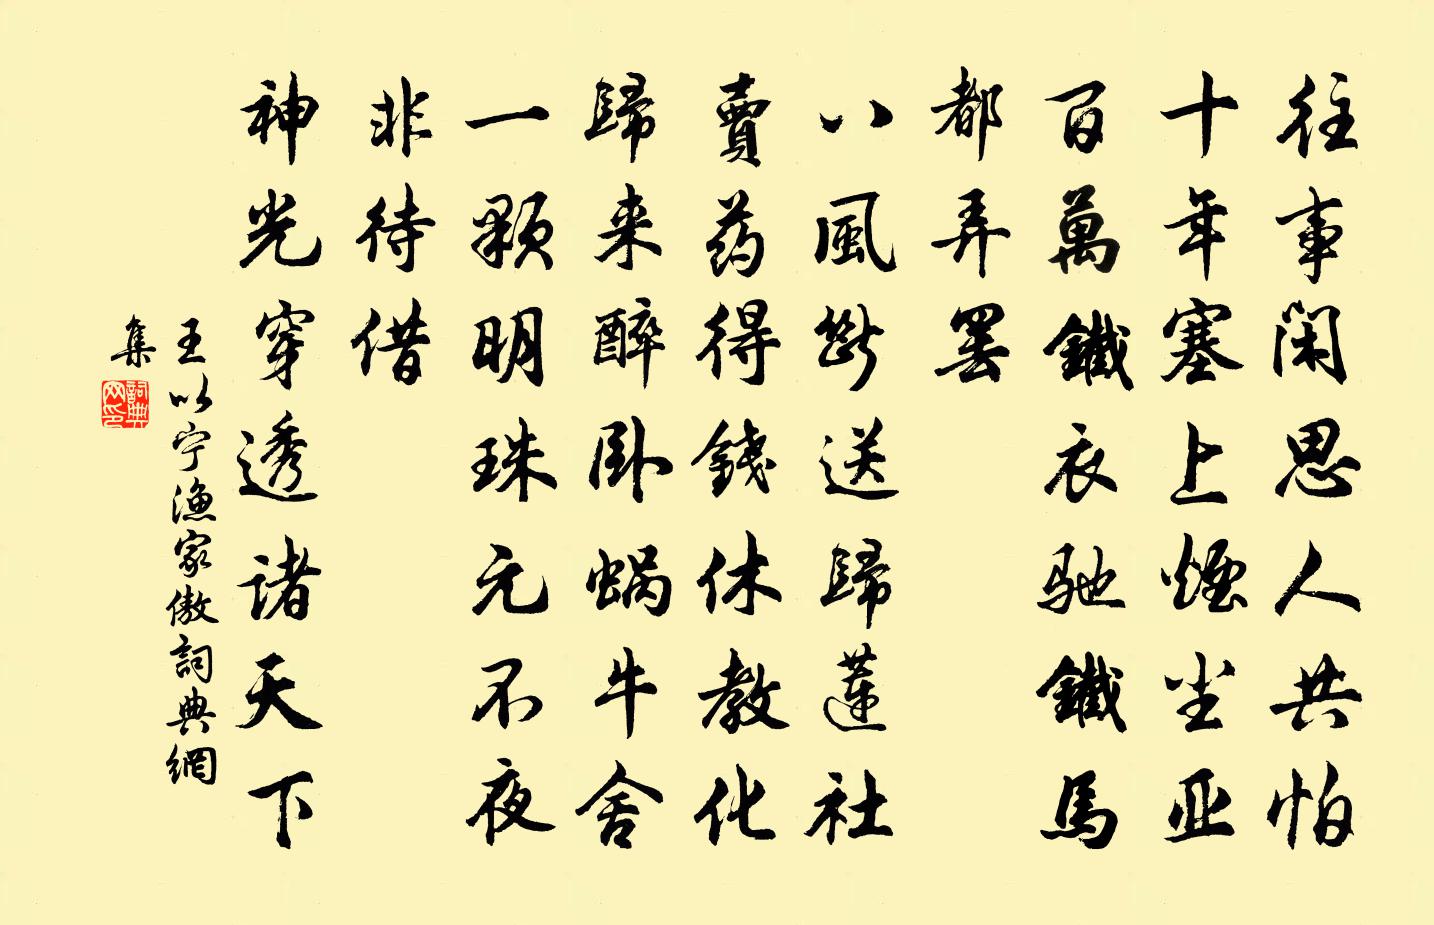 往事閑思人共怕
十年塞上煙尘亚
百萬鐵衣驰鐵馬
都弄罢
八風斷送歸蓮社
賣药得錢休教化
歸来醉卧蜗牛舍
一顆明珠元不夜
非待借
神光穿透諸天下
王以宁漁家傲詞典網
集
詞典網印